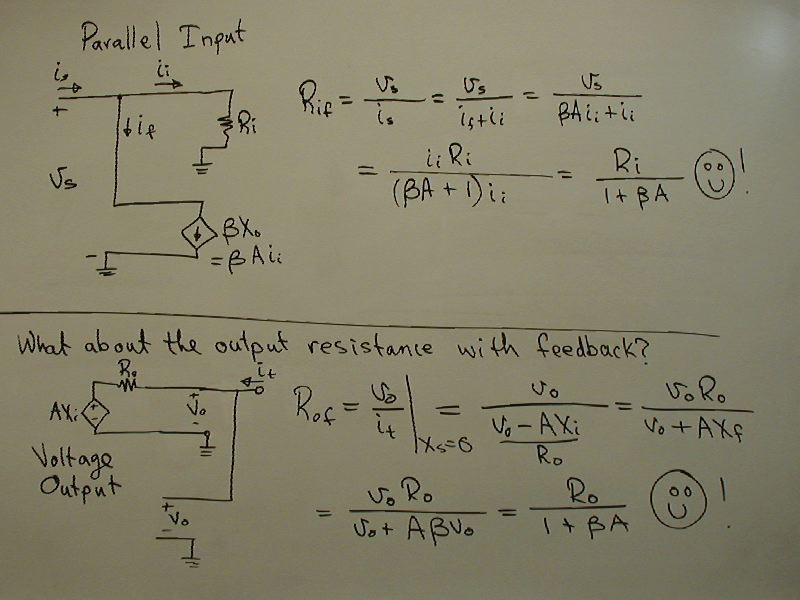 Parallel Input
i_s i_i
+ i_f R_i
v_s
βX_o
- = βA i_i
R_if = v_s / i_s = v_s / (i_f + i_i) = v_s / (βA i_i + i_i)
= i_i R_i / ((βA + 1) i_i) = R_i / (1 + βA) !
What about the output resistance with feedback?
R_o i_t
AX_i + - + v_o -
Voltage
Output
+ v_o -
R_of = v_o / i_t |_{X_s=0} = v_o / ((v_o - AX_i) / R_o) = v_o R_o / (v_o + AX_f)
= v_o R_o / (v_o + Aβv_o) = R_o / (1 + βA) !